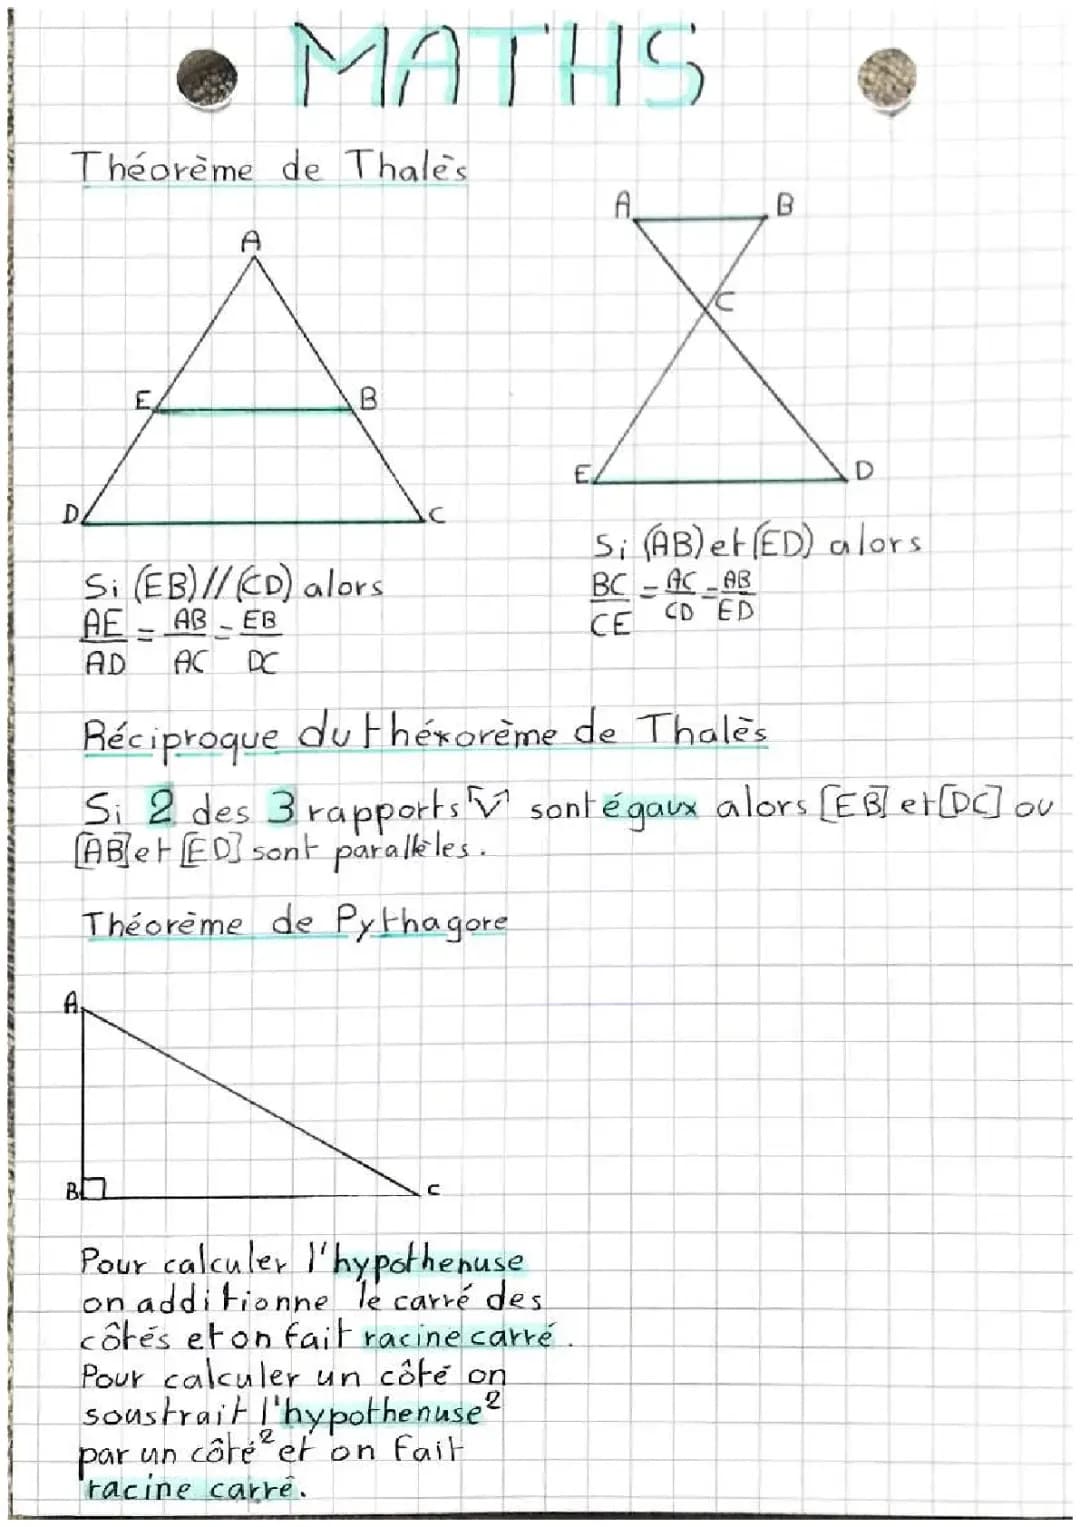 MATHS
Théorème de Thalès
A
E B
D C
A B
C
E D
Si (EB)//(CD) alors
AE = AB = EB
AD AC DC
Si (AB) et (ED) alors
BC = AC = AB
CE CD ED
Réciproque du théxorème de Thalès
Si 2 des 3 rapports sont égaux alors [EB] et [DC] ou
[AB] et [ED] sont parallèles.
Théorème de Pythagore
A
B C
Pour calculer l'hypothenuse
on additionne le carré des
côtés et on fait racine carré.
Pour calculer un côté on
soustrait l'hypothenuse²
par un côté² et on fait
racine carré.